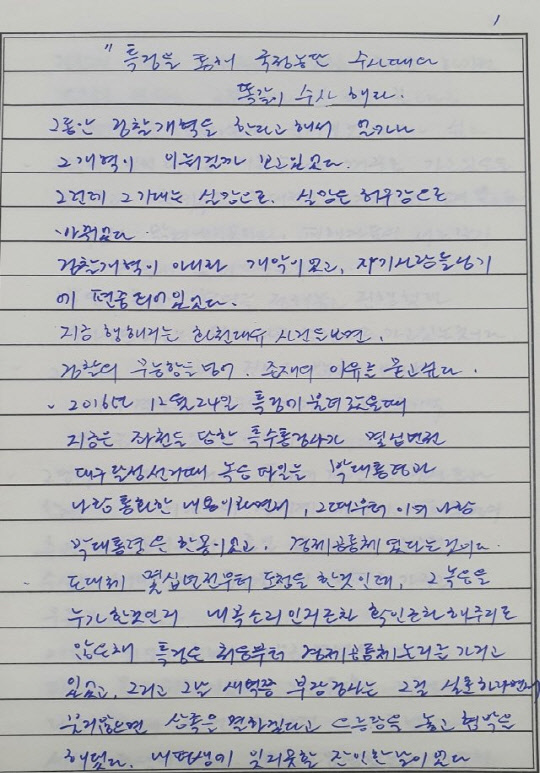 1
"특검을 통해 국정농단 수사때와
똑같이 수사 해라.
그동안 검찰개혁을 한다고 해서 얼마나
그 개혁이 이뤄질까 보고있었다.
그런데 그 기대는 실망으로. 실망은 허무감으로
바뀌었다.
검찰개혁이 아니라 개악이었고, 자기사람들심기
에 편중되어있었다.
지금 행해지는 화천대유 사건을보면,
검찰의 무능함을넘어. 존재의 이유를 묻고싶다.
2016년 12월24일 특검에 불려갔을때
지금은 좌천을 당한 특수통검사가 몇십년전
대구 달성선거때 녹음 파일을 박대통령과
나랑 통화한 내용이라면서, 그때부터 이미 나랑
박대통령은 한몸이었고. 경제공동체 였다는것이다.
도대체 몇십년전부터 도청을 한것인데, 그 녹음을
누가 한것인지 내목소리인지조차 확인조차 해주지도
않은채 특검은 처음부터 경제공동체논리를 가지고
있었고, 그리고 그날 새벽쯤 부장검사는 그걸 실토하라면서
불지않으면 삼족을 멸하겠다고 으름장을 놓고 협박을
해댔다. 내평생에 잊지못할 잔인한날이었다